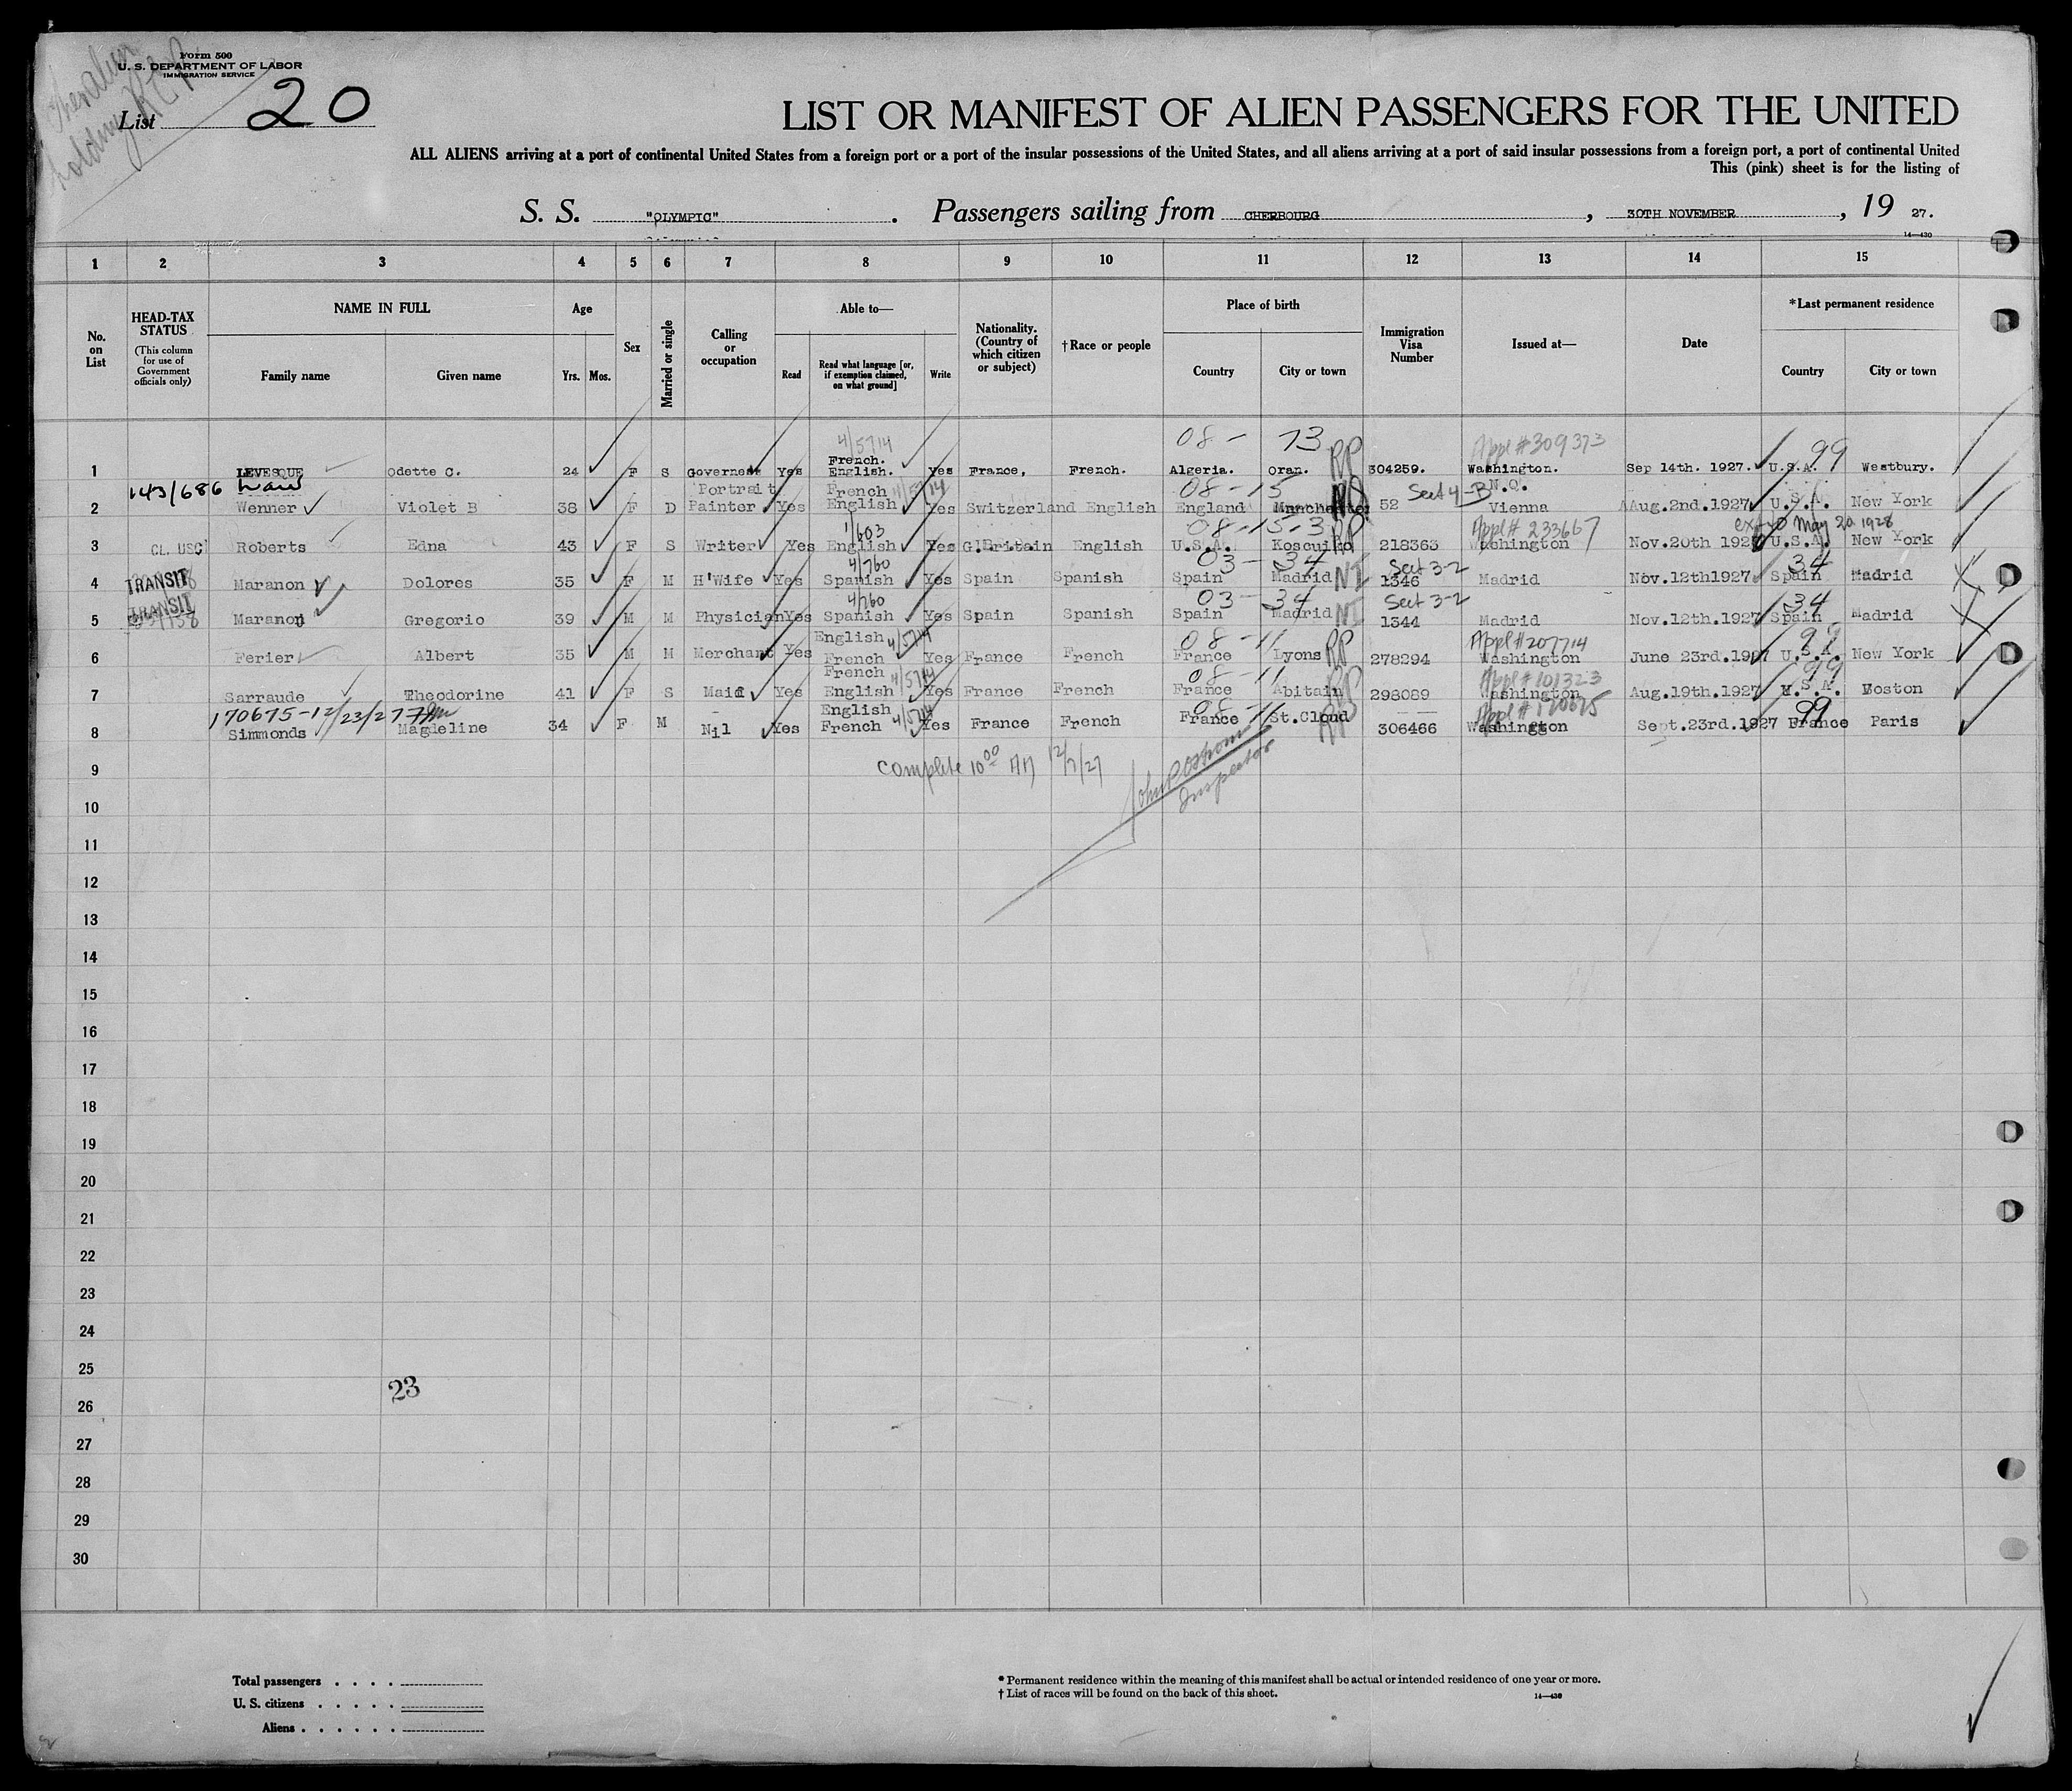 Form 500
U. S. DEPARTMENT OF LABOR
IMMIGRATION SERVICE
List 20
LIST OR MANIFEST OF ALIEN PASSENGERS FOR THE UNITED
ALL ALIENS arriving at a port of continental United States from a foreign port or a port of the insular possessions of the United States, and all aliens arriving at a port of said insular possessions from a foreign port, a port of continental United
This (pink) sheet is for the listing of
S. S. "OLYMPIC" . Passengers sailing from CHERBOURG , 30TH NOVEMBER , 19 27.
14—430
1 2 3 4 5 6 7 8 9 10 11 12 13 14 15
No. on List
HEAD-TAX STATUS (This column for use of Government officials only)
NAME IN FULL
Family name Given name
Age
Yrs. Mos.
Sex
Married or single
Calling or occupation
Able to—
Read Read what language [or, if exemption claimed, on what ground] Write
Nationality. (Country of which citizen or subject)
†Race or people
Place of birth
Country City or town
Immigration Visa Number
Issued at—
Date
*Last permanent residence
Country City or town
4/5714 08- 13 Appl #309373 99
1 LEVESQUE Odette C. 24 F S Governess Yes French. English. Yes France, French. Algeria. Oran. RP 304259. Washington. Sep 14th. 1927. U.S.A. Westbury.
143/686 08-15 Sect 4-B N.Q.
2 Wenner Violet B 38 F D Portrait Painter Yes French English Yes Switzerland English England Manchester 52 Vienna Aug.2nd.1927 U.S.A. New York
1/603 08-15-3 Appl# 233667 May 20 1928
3 CL. USC Roberts Edna 43 F S Writer Yes English Yes G.Britain English U.S.A. Koscuiko RP 218363 Washington Nov.20th 192 U.S.A. New York
4/760 03-34 Sect 3-2 34
4 TRANSIT Maranon Dolores 35 F M H'Wife Yes Spanish Yes Spain Spanish Spain Madrid NI 1346 Madrid Nov.12th1927 Spain Madrid
4/760 03-34 Sect 3-2 34
5 TRANSIT Maranon Gregorio 39 M M Physician Yes Spanish Yes Spain Spanish Spain Madrid NI 1344 Madrid Nov.12th.1927 Spain Madrid
4/5714 08-11 Appl #207714 99
6 Ferier Albert 35 M M Merchant Yes English French Yes France French France Lyons RP 278294 Washington June 23rd.1927 U.S.A. New York
4/5714 08-11 Appl #101323 99
7 Sarraude Theodorine 41 F S Maid Yes French English Yes France French France Abitain RP 298089 Washington Aug.19th.1927 U.S.A. Boston
170675-12/23/27 4/5714 08-11 Appl #170675 99
8 Simmonds Magdeline 34 F M Nil Yes English French Yes France French France St.Cloud RP 306466 Washington Sept.23rd.1927 France Paris
9
Complete 10 00 12/7/27
Inspector
10
11
12
13
14
15
16
17
18
19
20
21
22
23
24
25
23
26
27
28
29
30
Total passengers . . . .
U. S. citizens . . . . .
Aliens . . . . . .
* Permanent residence within the meaning of this manifest shall be actual or intended residence of one year or more.
† List of races will be found on the back of this sheet.
14—430